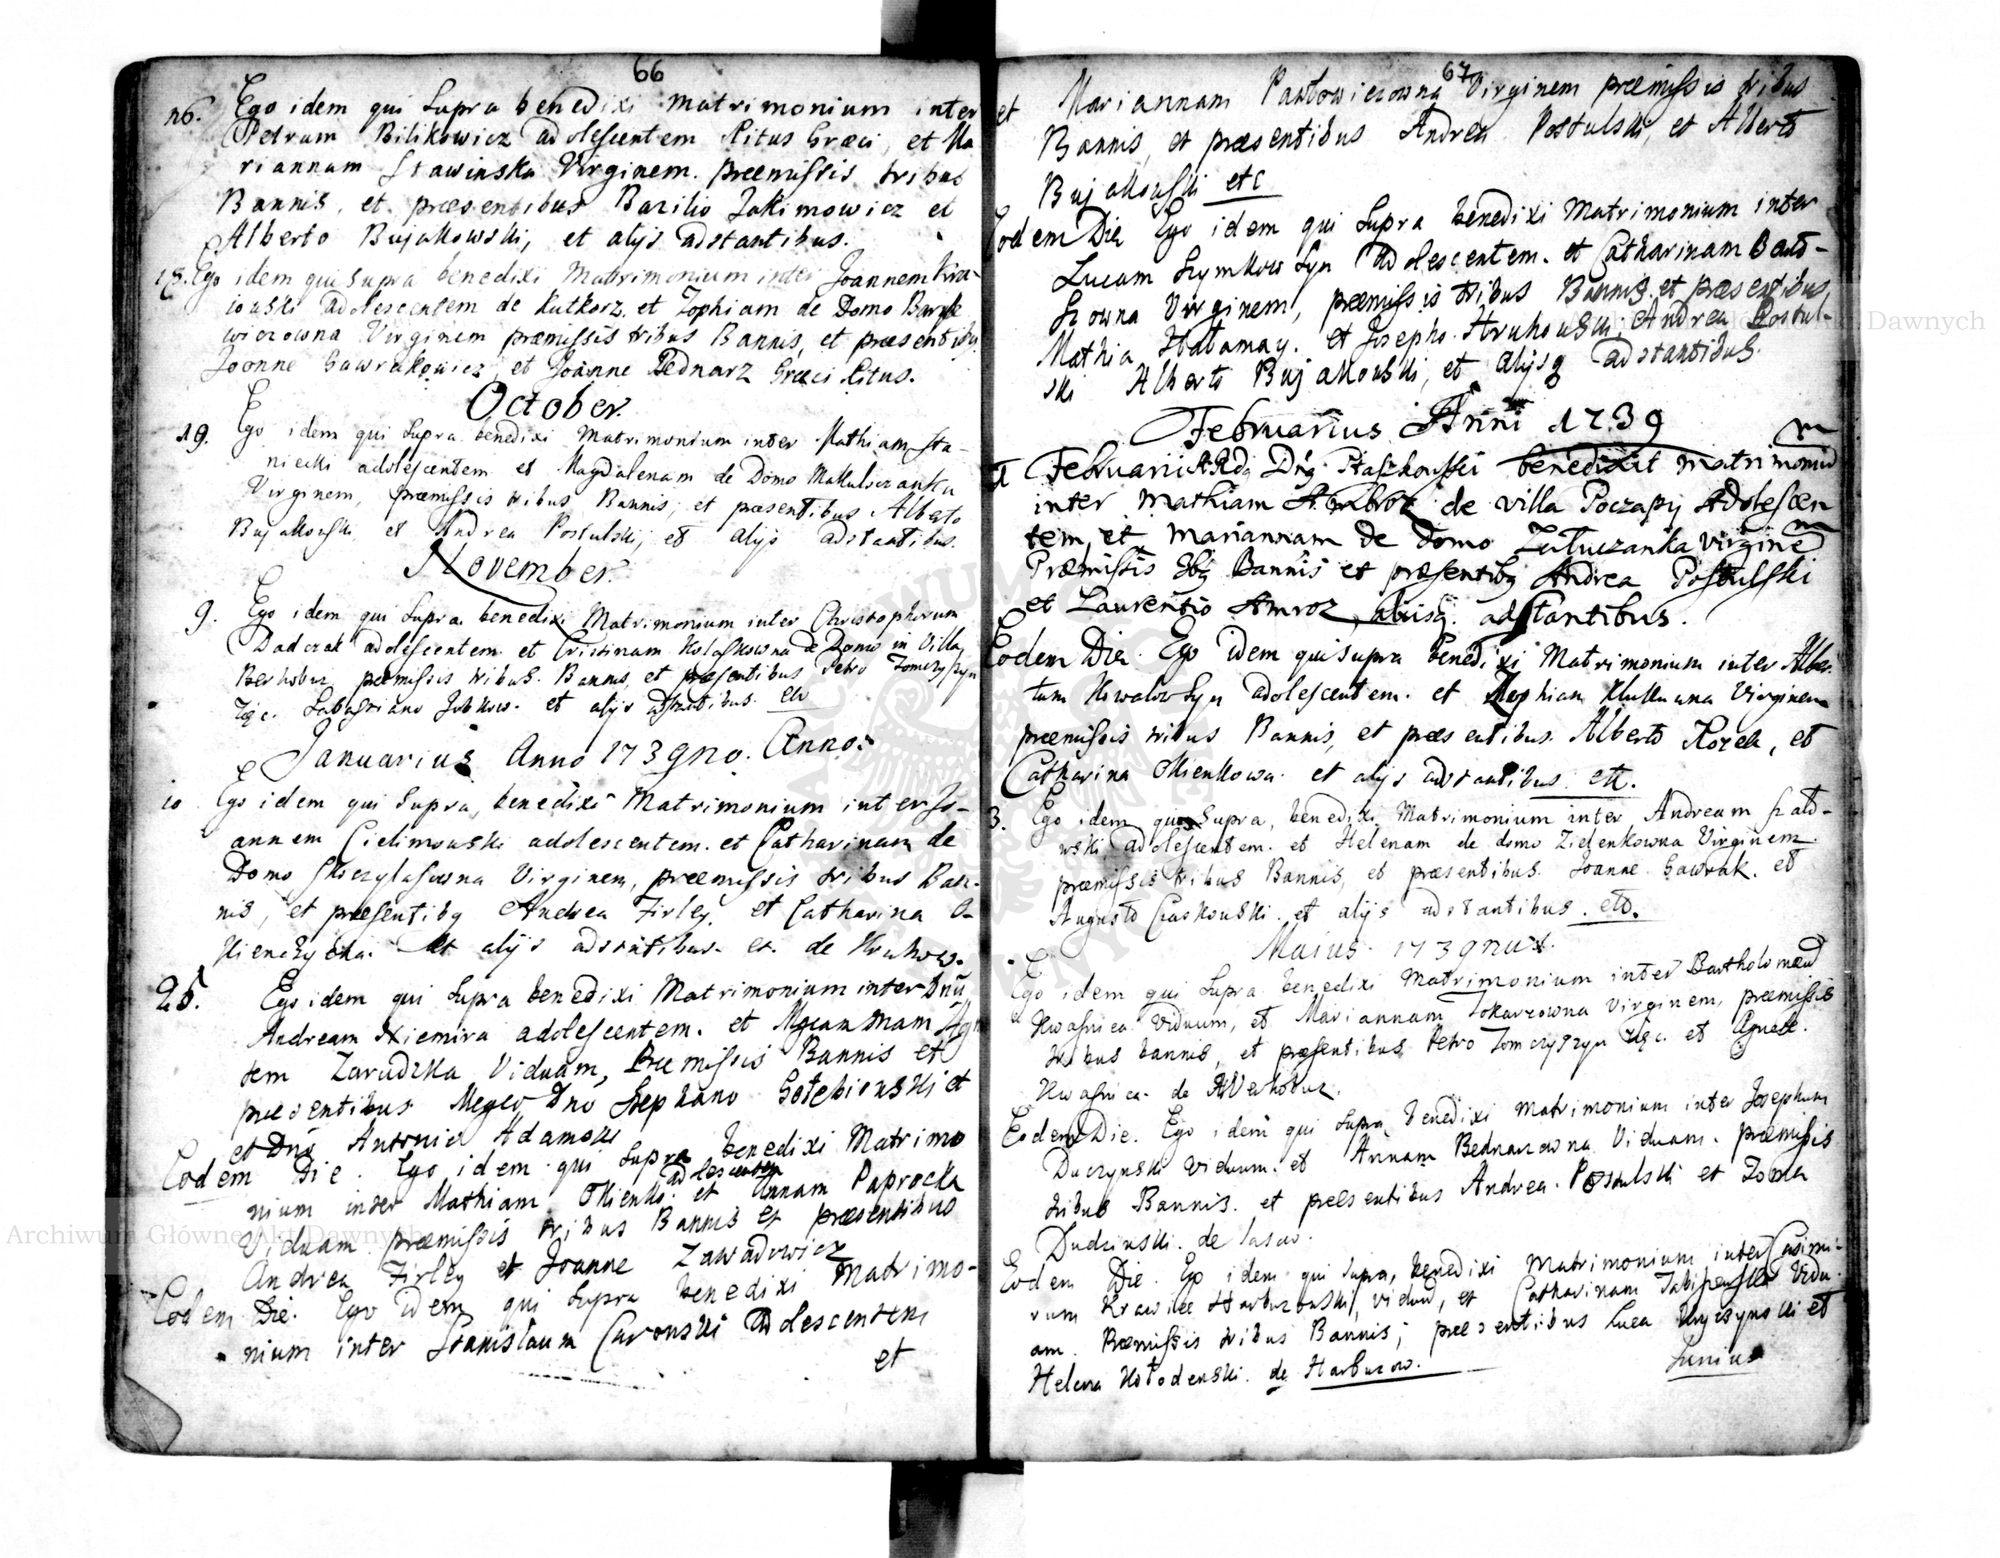 66
26. Ego idem qui Supra benedixi Matrimonium inter
Petrum Bilikowicz adolescentem Ritus Græci, et Ma
riannam Stawinska Virginem. præmissis tribus
Bannis, et præsentibus Bazilio Jakimowicz et
Alberto Bujakowski, et alijs adstantibus.
18. Ego idem qui supra benedixi Matrimonium inter Joannem
iowski adolescentem de Kutkorz, et Zophiam de Domo
wiczowna Virginem præmissis tribus Bannis, et præsentibus
Joanne Gawrekowicz, et Joanne Bednarz Græci Ritus.
October.
19. Ego idem qui Supra benedixi Matrimonium inter Mathiam Sta-
niecki adolescentem et Magdalenam de Domo
Virginem, præmissis tribus Bannis, et præsentibus Alberto
Bujakowski, et Andrea Postulski, et alijs adstantibus.
November.
9. Ego idem qui supra benedixi Matrimonium inter Christophorum
adolescentem et Cristinam de Domo in Villa
præmissis tribus Bannis, et præsentibus Petro Tomczyszyn
et alijs adstantibus. etc
Januarius Anno 1739no. Anno.
10 Ego idem qui Supra, benedixi Matrimonium inter Jo-
annem Cielimowski adolescentem. et Catharinam de
Domo Virginem, præmissis tribus Ban-
nis, et præsentibq Andrea Firley. et Catharina O-
Et alijs adstantibus. et. de
25. Ego idem qui Supra benedixi Matrimonium inter Dnū
Andream Niemira adolescentem. et
tem Zarudzka Viduam, Præmissis Bannis et
præsentibus Dno Stephano Gołebiowski et
et Dno Antonio Adamski
Eodem Die. Ego idem qui Supra benedixi Matrimo
adolescentem
nium inter Mathiam Okienko. et Annam Paprocka
Viduam præmissis tribus Bannis et præsentibus
Andrea Firley et Joanne Zawadowicz
Eodem Die. Ego idem qui Supra benedixi Matrimo-
nium inter Stanisłaum Curowski Adolescentem
et
67
et Mariannam Pawłowiczowna Virginem præmissis tribus
Bannis, et præsentibus Andrea Postulski, et Alberto
Bujakowski etc
Eodem Die Ego idem qui Supra benedixi Matrimonium inter
Lucam Szymkow Syn Adolescentem. et Catharinam Barto-
szowna Virginem, præmissis tribus Bannis, et præsentibus,
Mathia Hałamay. et Josepho Hruhowski, Andrea Postul-
ski Alberto Bujakowski, et alijsq adstantibus.
Februarius Anni 1739
Februarii Rdq Dnq Ptaszkowski benedixit matrimoniū
inter Mathiam Ambroz de villa Poczapy Adolescen
tem, et Mariannam de Domo Załuczanka virginē
Præmissis Bannis et præsentibq Andrea Postulski
et Laurentio Amroz, aliisq. adstantibus.
Eodem Die. Ego idem qui supra benedixi Matrimonium inter Alber
tum Kowalow Syn adolescentem. et Zophiam Virginem
præmissis tribus Bannis, et præsentibus. Alberto Kozek, et
Catharina Okienkowa. et alijs adstantibus. etc.
3. Ego idem qui Supra, benedixi Matrimonium inter Andream
wski adolescentem. et Helenam de domo Zielenkowna Virginem.
præmissis tribus Bannis, et præsentibus. Joanne Gawrak. et
Augusto Czaskowski. et alijs adstantibus. etc.
Maius. 1739
Ego idem qui Supra benedixi Matrimonium inter Bartholomæū
Kwasnica Viduum, et Mariannam Tokarzowna Virginem, præmissis
tribus bannis, et præsentibus Petro Tomczyszyn et Agnete.
Kwasnica. de
Eodem Die. Ego idem qui Supra benedixi Matrimonium inter Josephum
Duczynski Viduum. et Annam Bednarzowna Viduam. præmissis
tribus Bannis. et præsentibus Andrea. Postulski et Toma
Dudzinski. de
Eodem Die. Ego idem qui supra, benedixi Matrimonium inter Casimi-
rum Krawiec Harbuzowski, viduū, et Catharinam Vidu
am. Præmissis tribus Bannis; præsentibus Luca et
Helena Kołodenski. de Harbuzow.
Junius
Archiwum Główne Akt Dawnych
Archiwum Główne Akt Dawnych